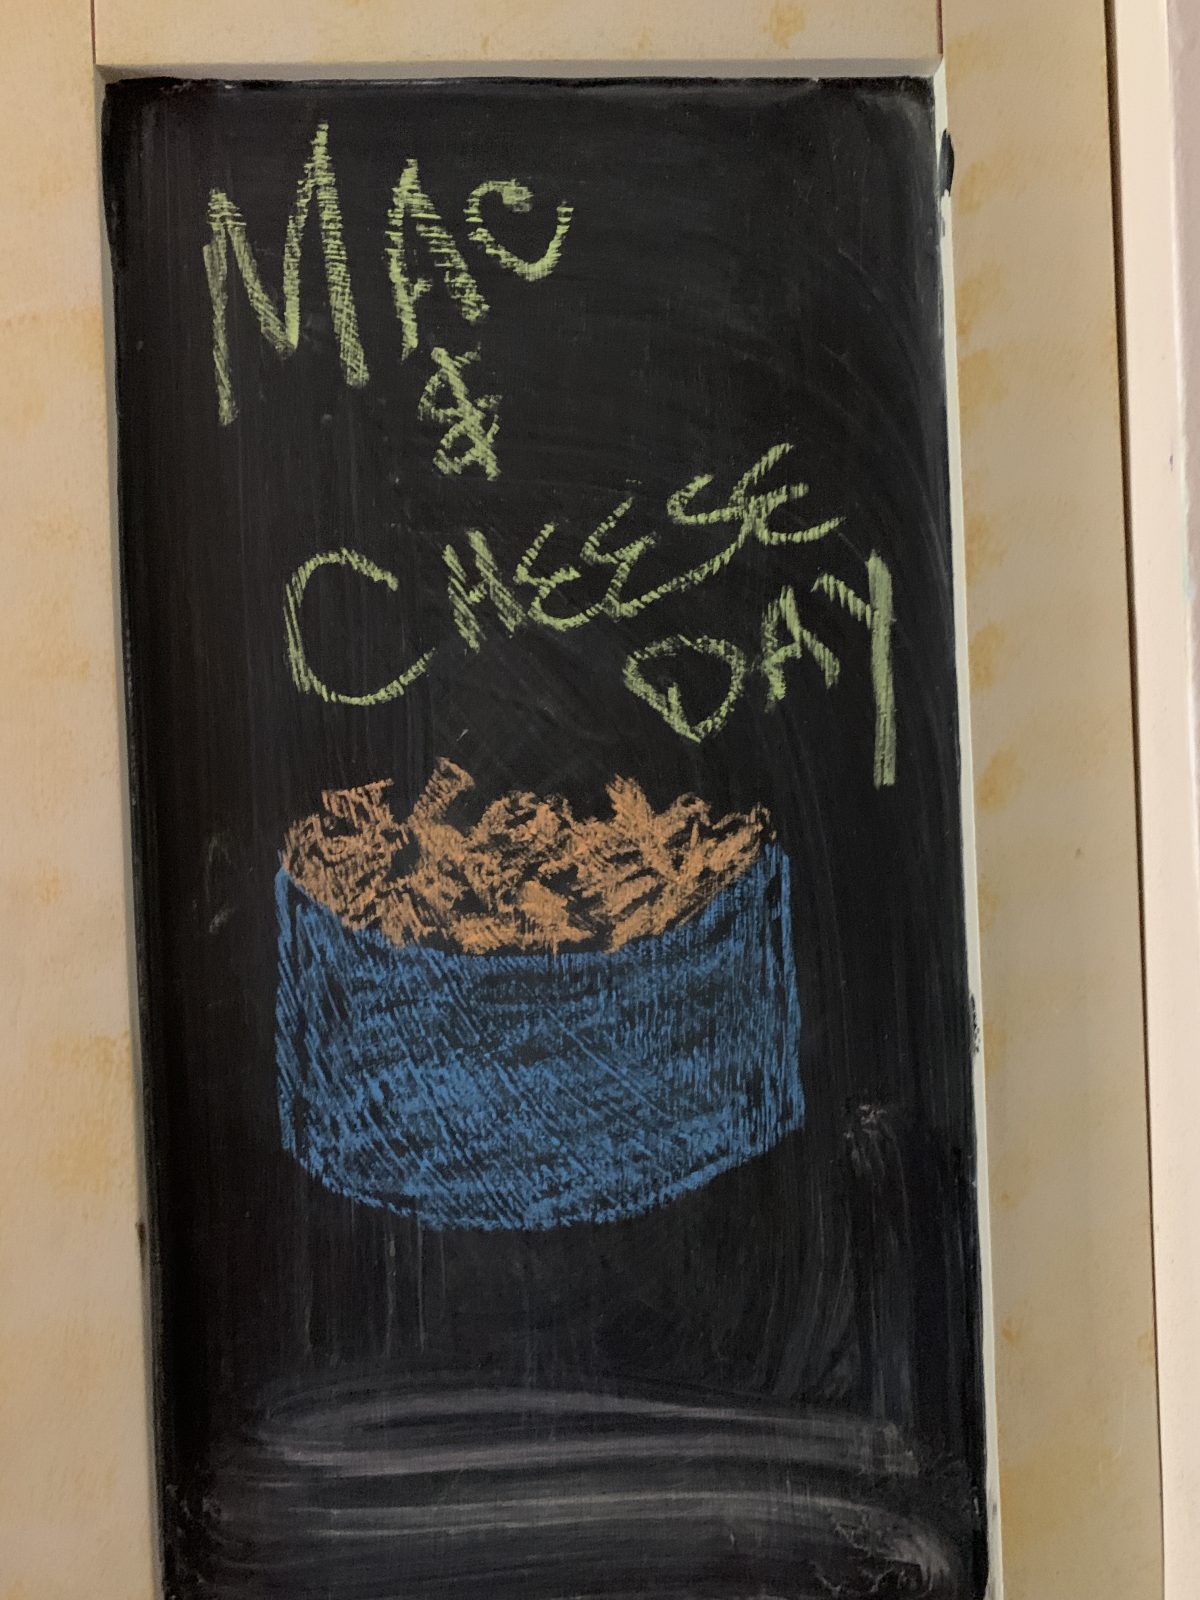 MAC
&
CHEESE
DAY